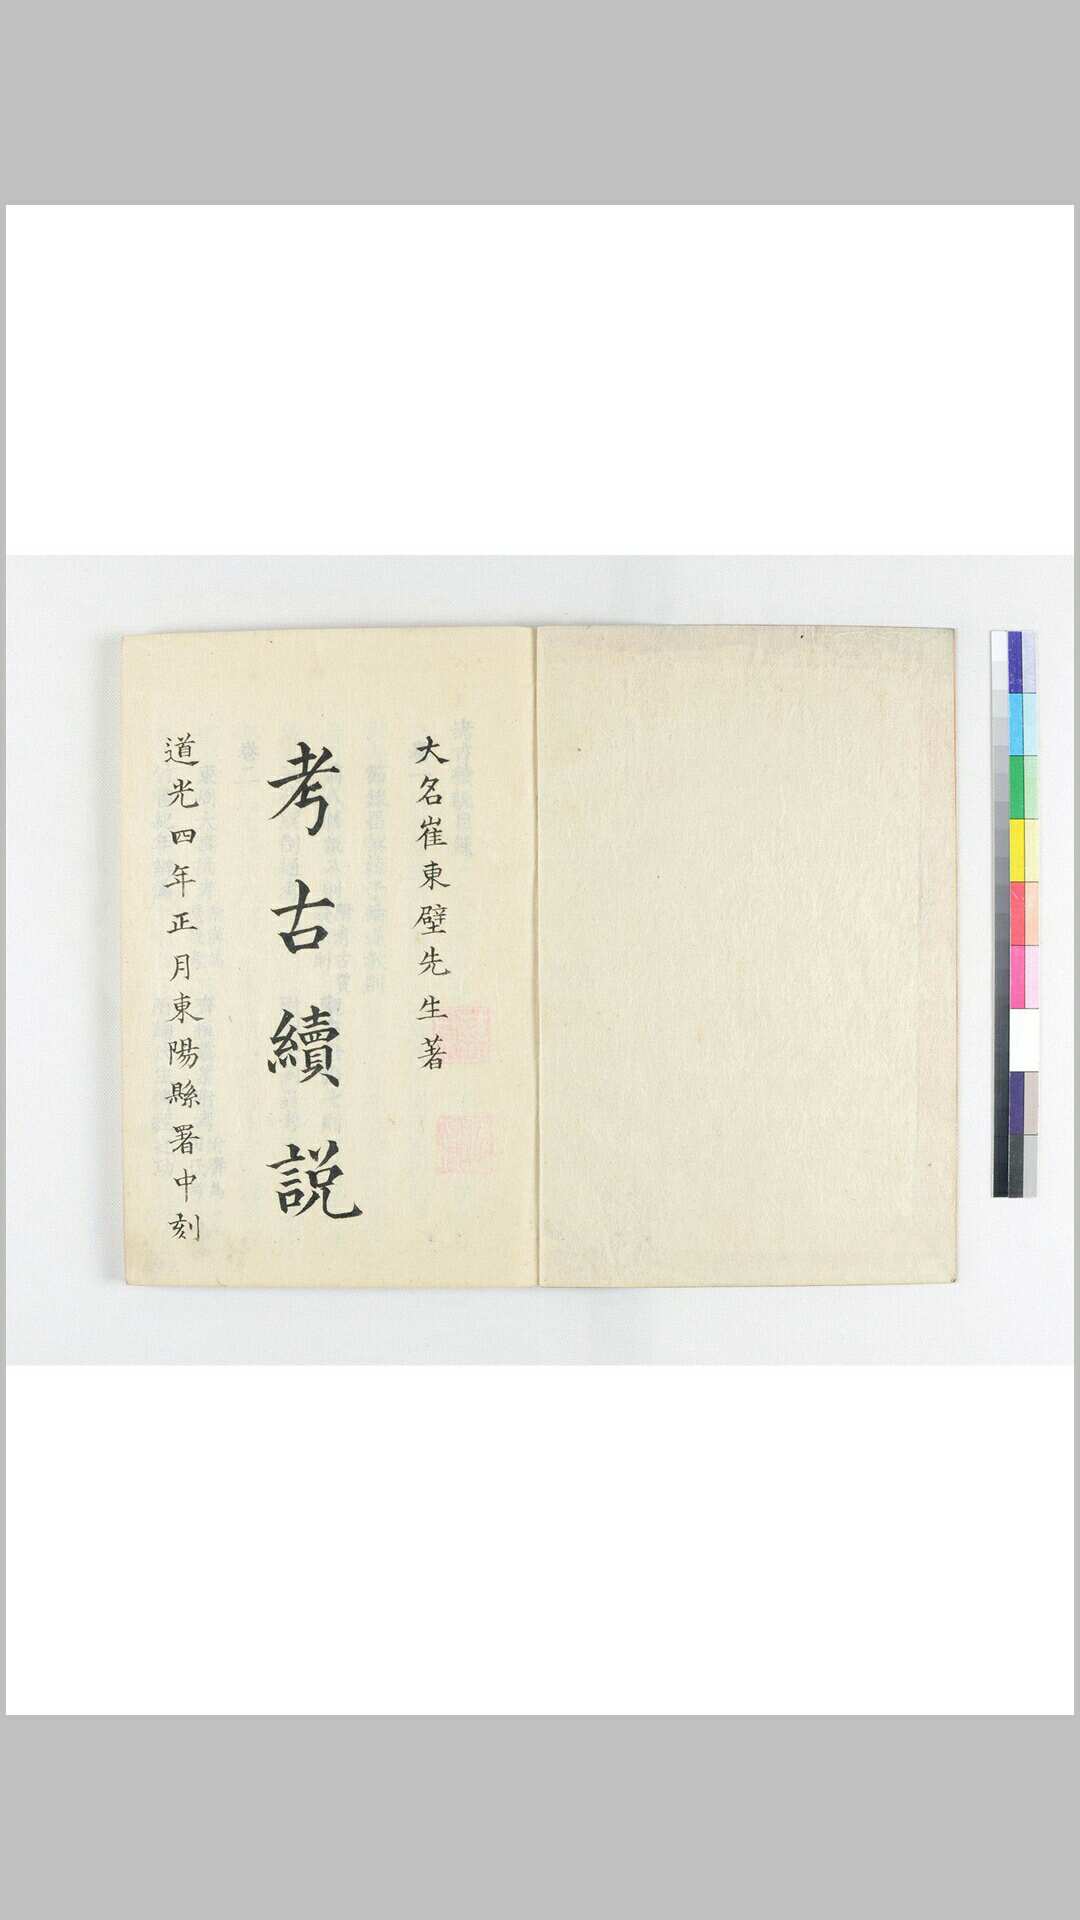 大名崔東壁先生著
考古續説
道光四年正月東陽縣署中刻